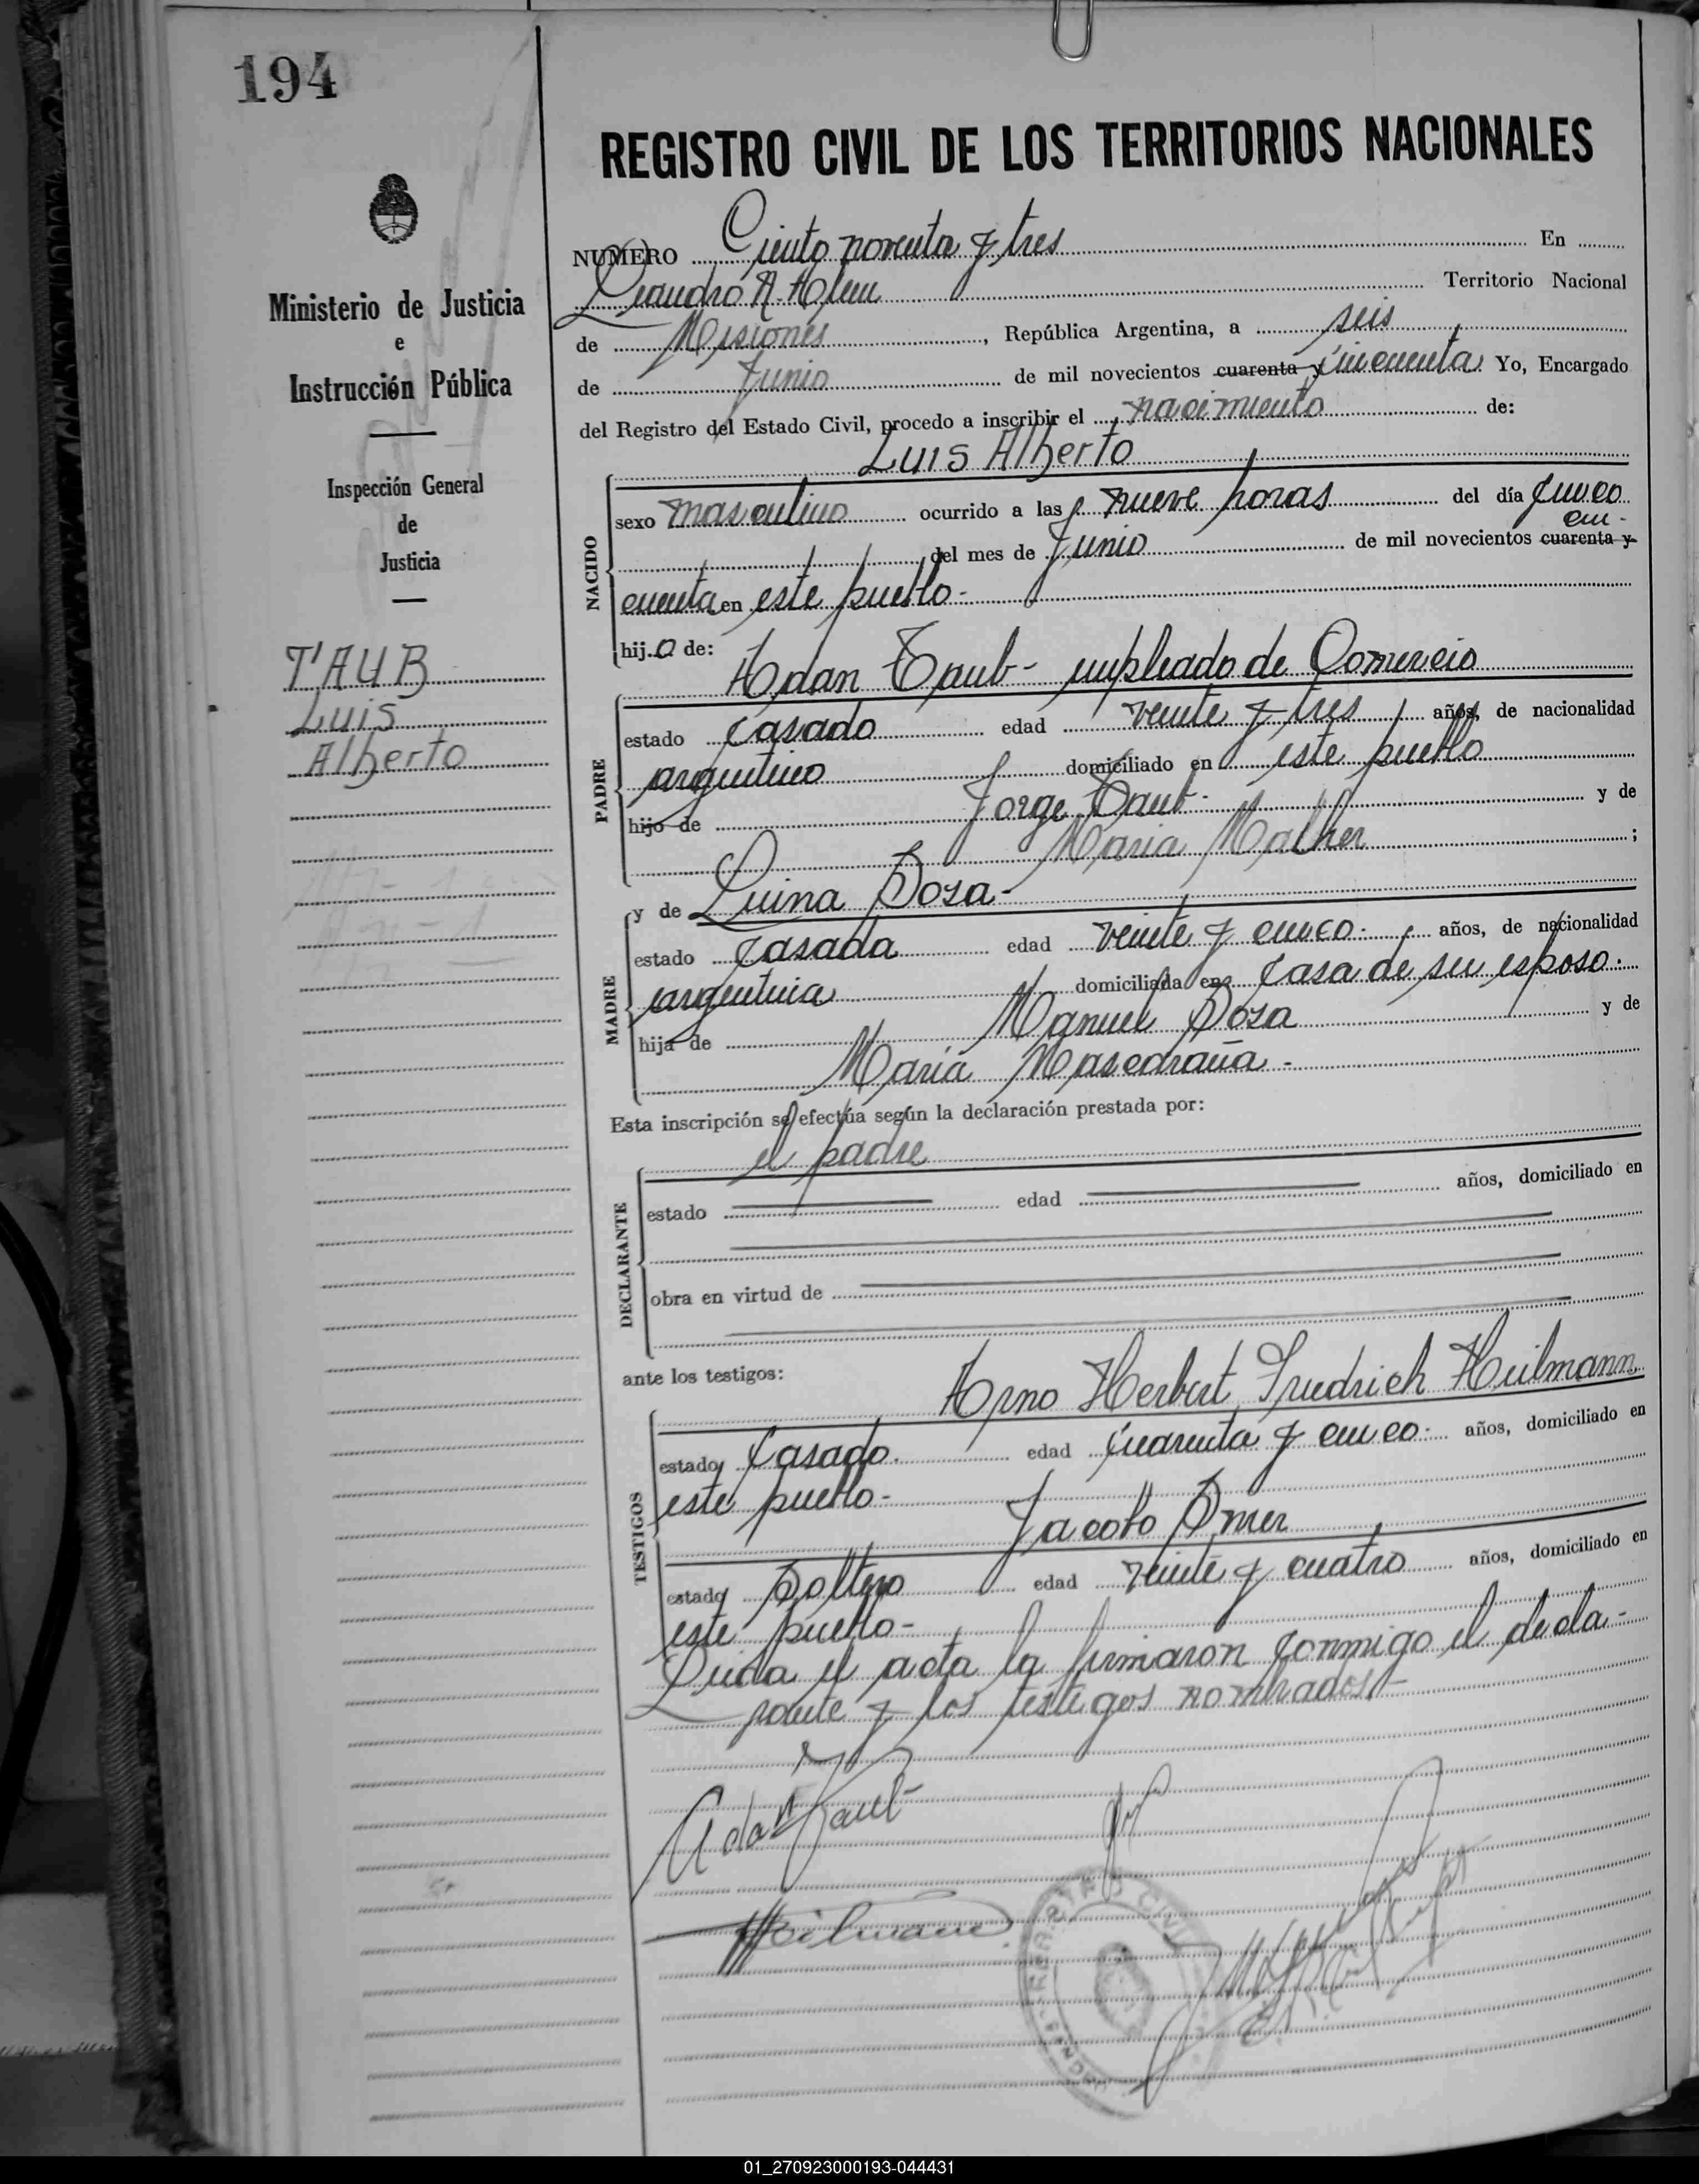 194
REGISTRO CIVIL DE LOS TERRITORIOS NACIONALES
Ministerio de Justicia
e
Instrucción Pública
Inspección General
de
Justicia
TAUB
Luis
Alberto
NUMERO Ciento noventa y tres En
Leandro N. Alem Territorio Nacional
de Misiones, República Argentina, a seis
de Junio de mil novecientos cuarenta y cincuenta Yo, Encargado
del Registro del Estado Civil, procedo a inscribir el nacimiento de:
Luis Alberto
NACIDO
sexo masculino ocurrido a las nueve horas del día cinco
del mes de Junio de mil novecientos cuarenta y cin-
cuenta en este pueblo-
hijo de:
Adan Taub- empleado de Comercio
PADRE
estado casado edad veinte y tres años, de nacionalidad
argentino domiciliado en este pueblo
hijo de Jorge Taub- y de
Maria Malher;
y de Luina Doza-
MADRE
estado casada edad veinte y cinco- años, de nacionalidad
argentina domiciliada en casa de su esposo-
hija de Manuel Doza y de
Maria Mascaraña-
Esta inscripción se efectúa según la declaración prestada por:
el padre
DECLARANTE
estado edad años, domiciliado en
obra en virtud de
ante los testigos:
Arno Herbert Friedrich Heilmann
TESTIGOS
estado casado. edad cuarenta y cinco- años, domiciliado en
este pueblo-
Jacobo
estado soltero edad veinte y cuatro años, domiciliado en
este pueblo-
Leida el acta la firmaron conmigo el decla-
rante y los testigos nombrados-
Adan Taub
Heilmann
REGISTRO CIVIL
01_270923000193-044431